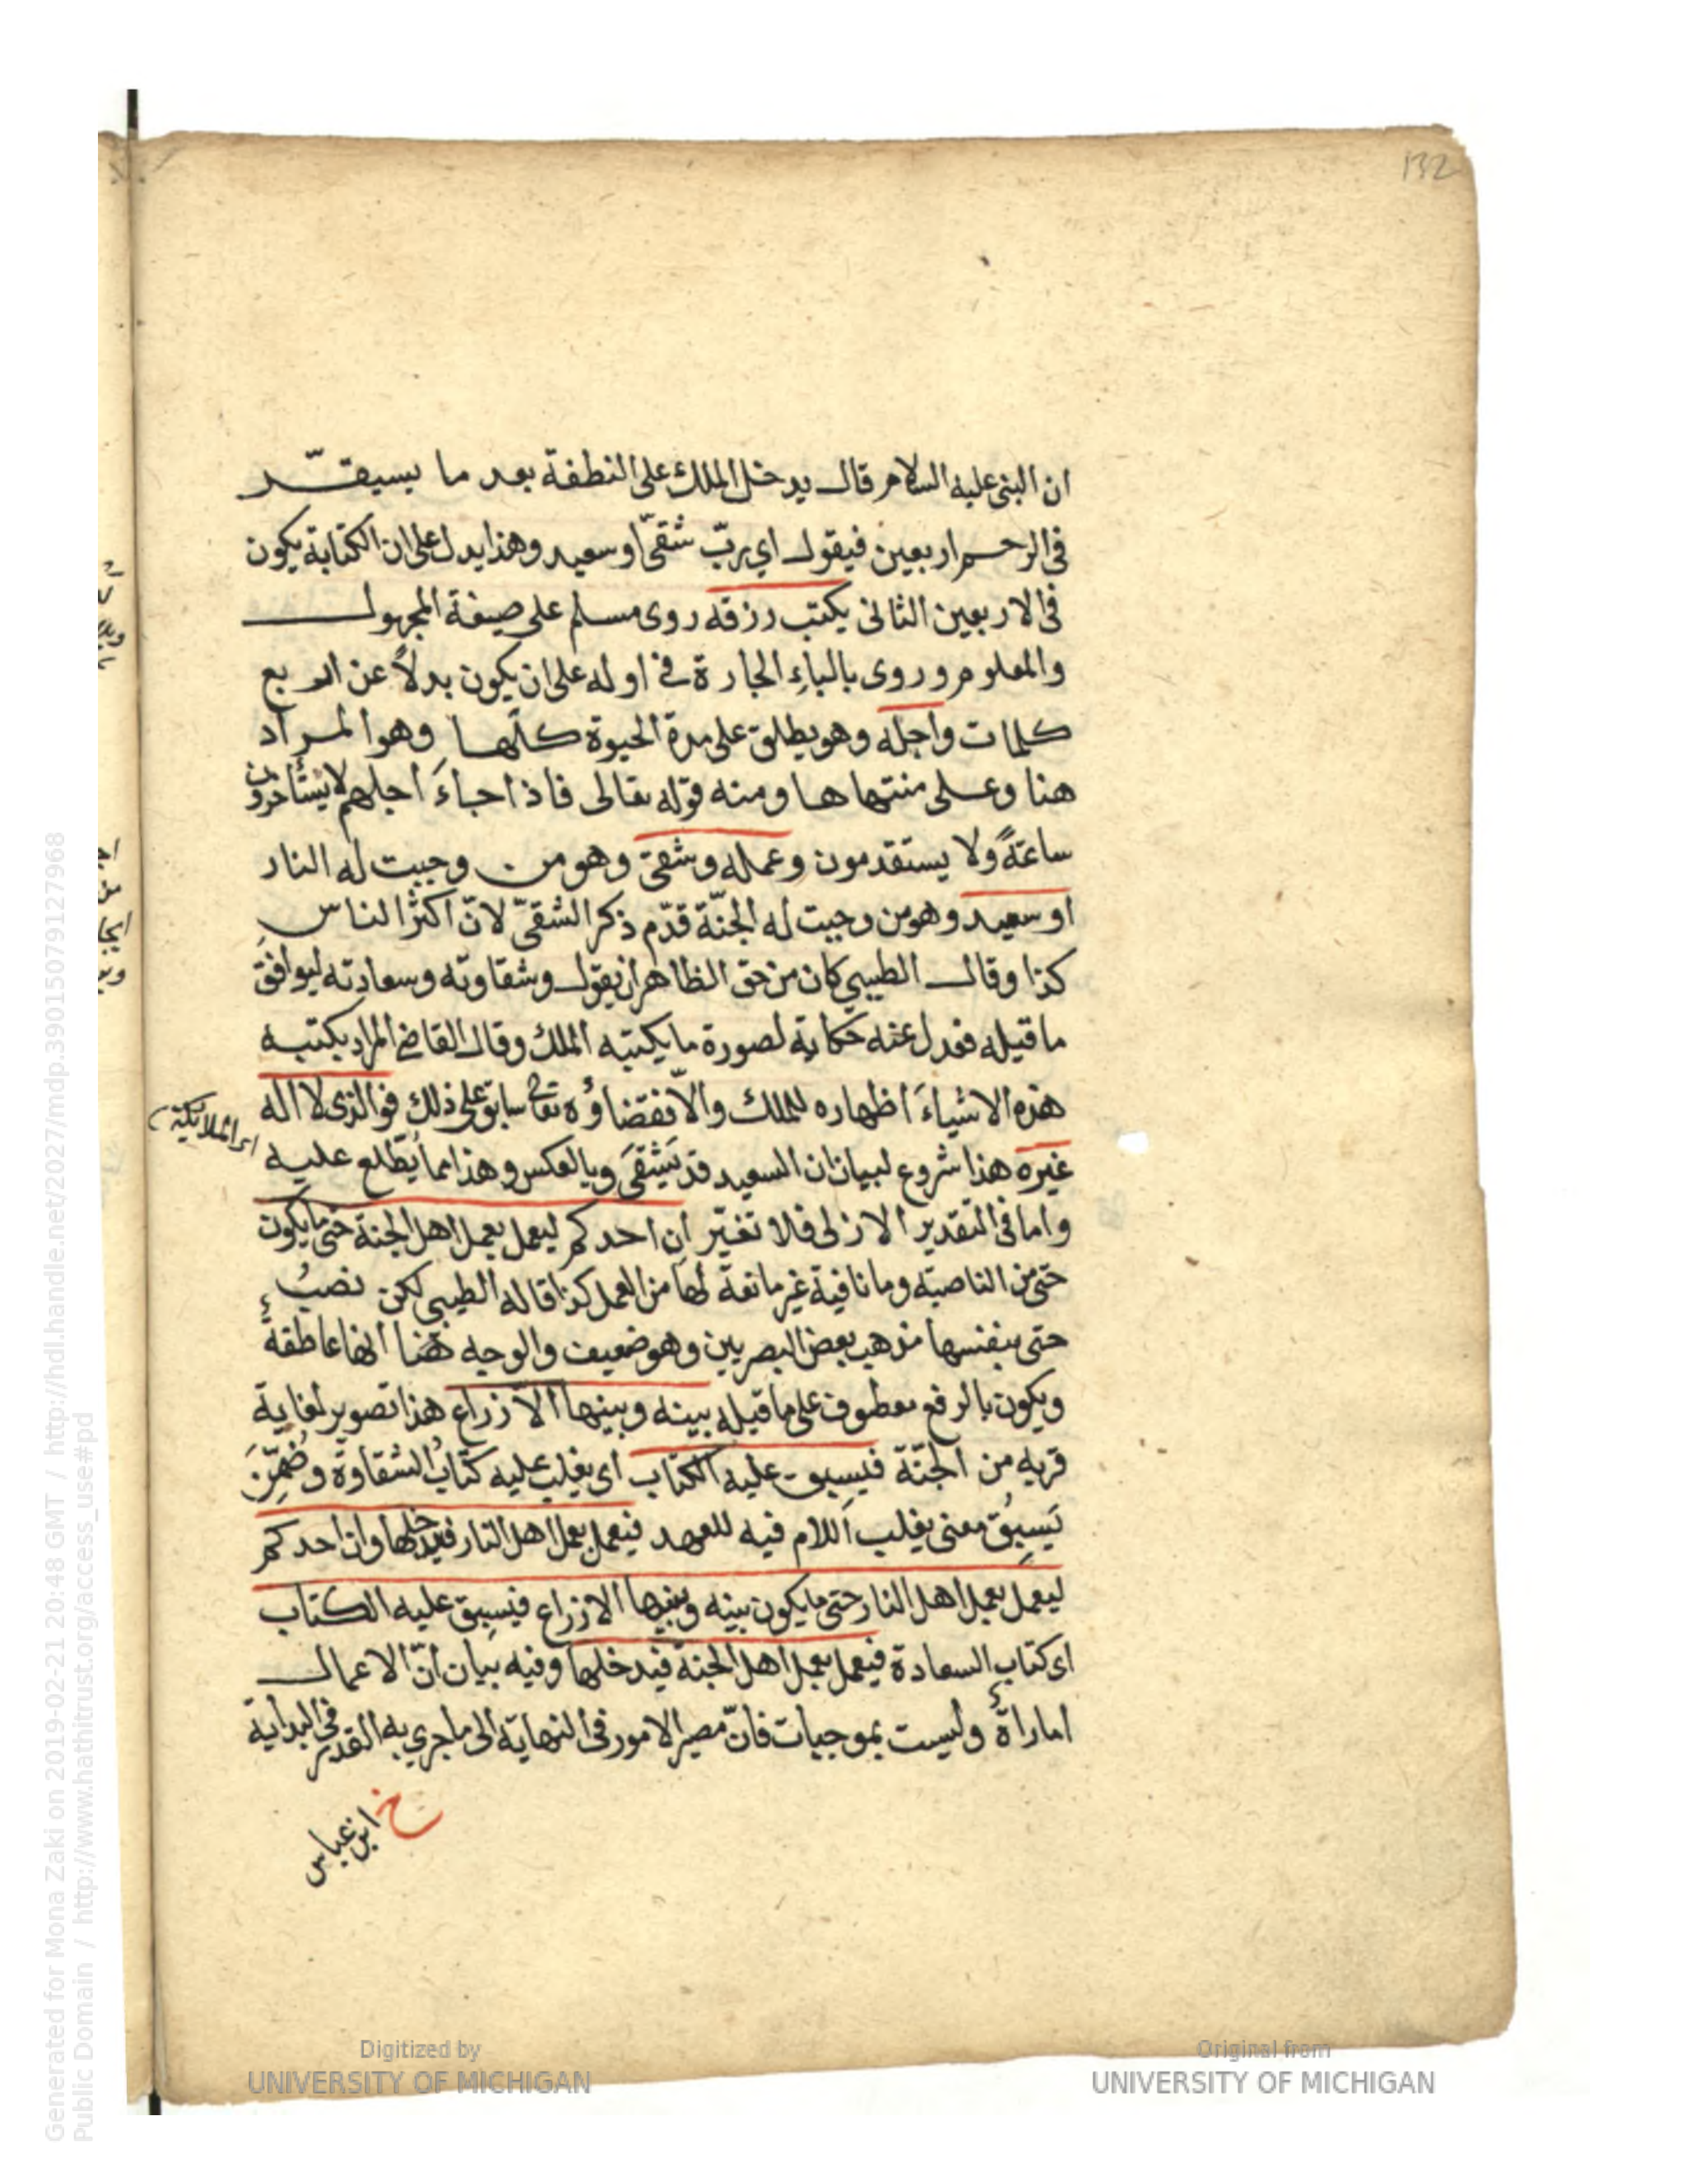 132
ان النبي عليه السلام قال يدخل الملك على النطفة بعد ما يستقر
في الرحم اربعين فيقول اي ربّ شقيّ او سعيد وهذا يدل على ان الكتابة يكون
في الاربعين الثاني يكتب رزقه روى مسلم على صيغة المجهول
والمعلوم وروى بالباءِ الجارة في اوله على ان يكون بدلاً عن اربع
كلمات واجله وهو يطلق على مدة الحيوة كلّها وهو المراد
هنا وعلى منتهاها ومنه قوله تعالى فاذا جاءَ اجلهم لا يستأخرون
ساعةً ولا يستقدمون وعمله وشقي وهو من وجبت له النار
او سعيد وهو من وجبت له الجنّة قدّم ذكر الشقيّ لانّ اكثر الناس
كذا وقال الطيبي كان من حق الظاهر ان يقول وشقاوته وسعادته ليوافق
ما قبله فعدل عنه حكاية لصورة ما يكتبه الملك وقال القاضي المراد بكتبه
هذه الاشياءَ اظهاره للملك والّا فقضاؤه تعالى سابق على ذلك فوالذي لا اله
اى الملائكة
غيره هذا شروع لبيان ان السعيد قد يَشْقىَ وبالعكس وهذا مما يُطّلع عليه
واما في التقدير الازلى فلا تغيّر ان احدكم ليعمل بعمل اهل الجنة حتى ما يكون
حتى من الناصبة وما نافية غير مانعة لها من العمل كذا قاله الطيبي لكن نصبُ
حتى بنفسها مذهب بعض البصريين وهو ضعيف والوجه ههنا انها عاطفةٌ
ويكون بالرفع معطوف على ما قبله بينه وبينها الّا ذراع هذا تصوير لغاية
قربه من الجنّة فيسبق عليه الكتاب اى يغلب عليه كتابُ الشقاوة وضُمِّنَ
يَسبِقُ معنى يغلب اللام فيه للعهد فيعمل بعمل اهل النار فيدخلها وان احدكم
ليعمل بعمل اهل النار حتى ما يكون بينه وبينها الا ذراع فيسبق عليه الكتاب
اى كتاب السعادة فيعمل بعمل اهل الجنة فيدخلها وفيه بيان انّ الاعمال
اماراةٌ وليست بموجبات فانّ مصير الامور في النهاية الى ما جرى به القدر في البداية
خ
ابن عباس
Generated for Mona Zaki on 2019-02-21 20:48 GMT / http://hdl.handle.net/2027/mdp.39015079127968
Public Domain / http://www.hathitrust.org/access_use#pd
Digitized by
UNIVERSITY OF MICHIGAN
Original from
UNIVERSITY OF MICHIGAN